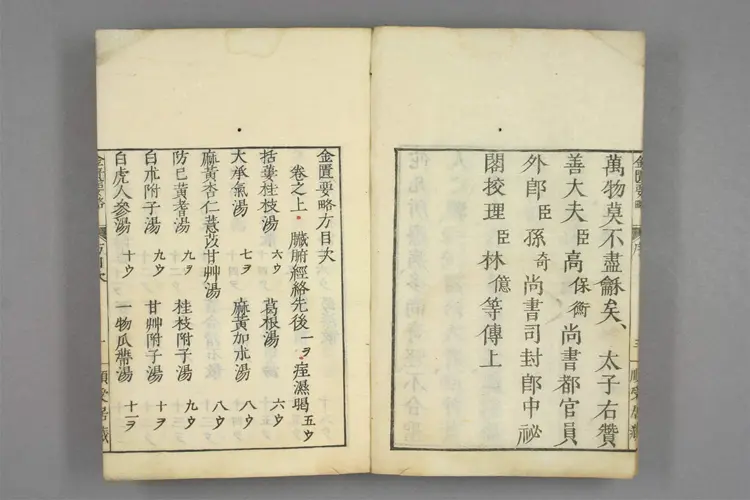 萬物莫不盡龢矣、太子右贊
善大夫臣高保衡尚書都官員
外郎臣孫奇尚書司封郎中祕
閣挍理臣林億等傳上
金匱要略方目次
卷之上 臟腑經絡先後一ヲ 痙濕暍五ウ
栝蔞桂枝湯六ウ 葛根湯六ウ
大承氣湯七ヲ 麻黃加朮湯八ウ
麻黃杏仁薏苡甘艸湯八ウ
防已黃耆湯九ヲ 桂枝附子湯九ウ
白朮附子湯九ウ 甘艸附子湯十ヲ
白虎人參湯十ウ 一物瓜蔕湯十一ヲ
金匱要略
方目次
一
順受居藏